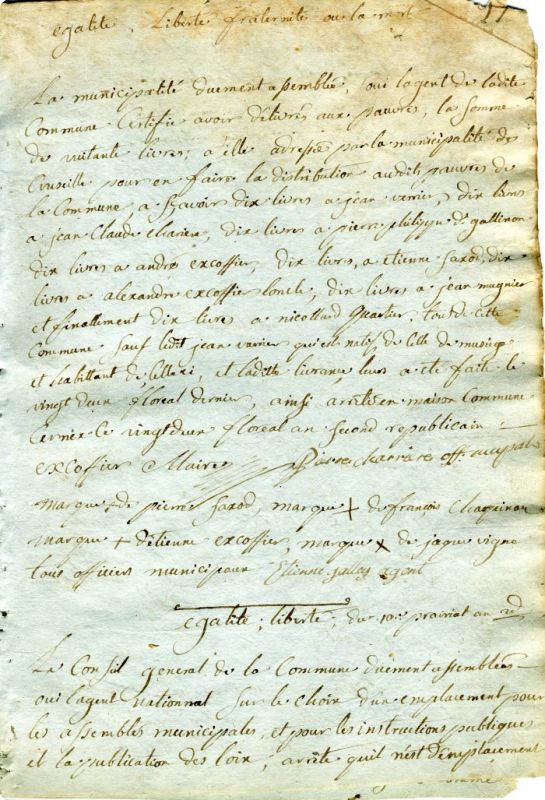 egalite, Liberté fraternité ou la mort
La municipalité duement assemblée, oui lagent de ladite
Commune Certifie avoir délivrés aux pauvres, la somme
de uitante livres; a elle adressée par la municipalité de
Cruseille pour en faire la distribution audits pauvres de
la Commune, a sçavoir dix livres a jean verrier, dix livres
a jean Claude charier, dix livres a pierre philippe de gallinon
dix livres a andré excoffier, dix livres, a etienne saxod, dix
livres a alexandre excoffier loncle, dix livres a jean mugnier
et finallement dix livres a nicollaud Quartier, tous de cette
Commune sauf ledit jean varrier qui est natif de Celle de musiege
et habittant de Celle ci, et laditte livrance leurs a été faite le
vingt deux floreal dernier, ainsi arrêté en maison Commune
Cernex Ce vingt deux floreal an second republicain
excoffier Maire Pierre charriere off. municipal
marque + de pierre saxod, marque + de françois Chapuinou
marque + d'étienne excoffier, marque + de jaque vigne
tous officiers municipaux Etienne agent
egalité, liberté, du 10e prairial an 2d
Le Conseil general de la Commune duement assemblée
oui lagent nationnat sur le choix dun emplacement pour
les assemblés municipales, et pour les instructions publiques
et la publication des loix, arrête quil n'est d'emplacement